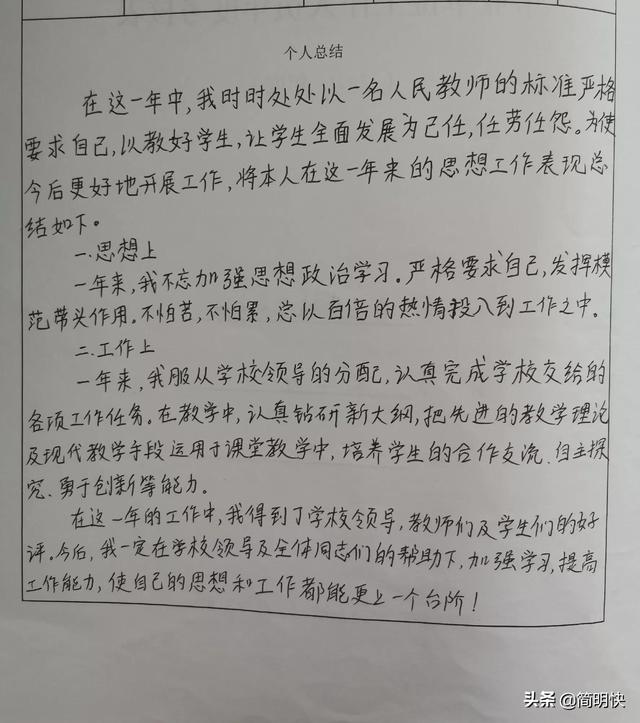 个人总结
在这一年中,我时时处处以一名人民教师的标准严格
要求自己,以教好学生,让学生全面发展为己任,任劳任怨。为使
今后更好地开展工作,将本人在这一年来的思想工作表现总
结如下。
一.思想上
一年来,我不忘加强思想政治学习。严格要求自己,发挥模
范带头作用。不怕苦,不怕累,总以百倍的热情投入到工作之中。
二.工作上
一年来,我服从学校领导的分配,认真完成学校交给的
各项工作任务。在教学中,认真钻研新大纲,把先进的教学理论
及现代教学手段运用于课堂教学中,培养学生的合作交流、自主探
究、勇于创新等能力。
在这一年的工作中,我得到了学校领导,教师们及学生们的好
评。今后,我一定在学校领导及全体同志们的帮助下,加强学习,提高
工作能力,使自己的思想和工作都能更上一个台阶!
头条 @简明快